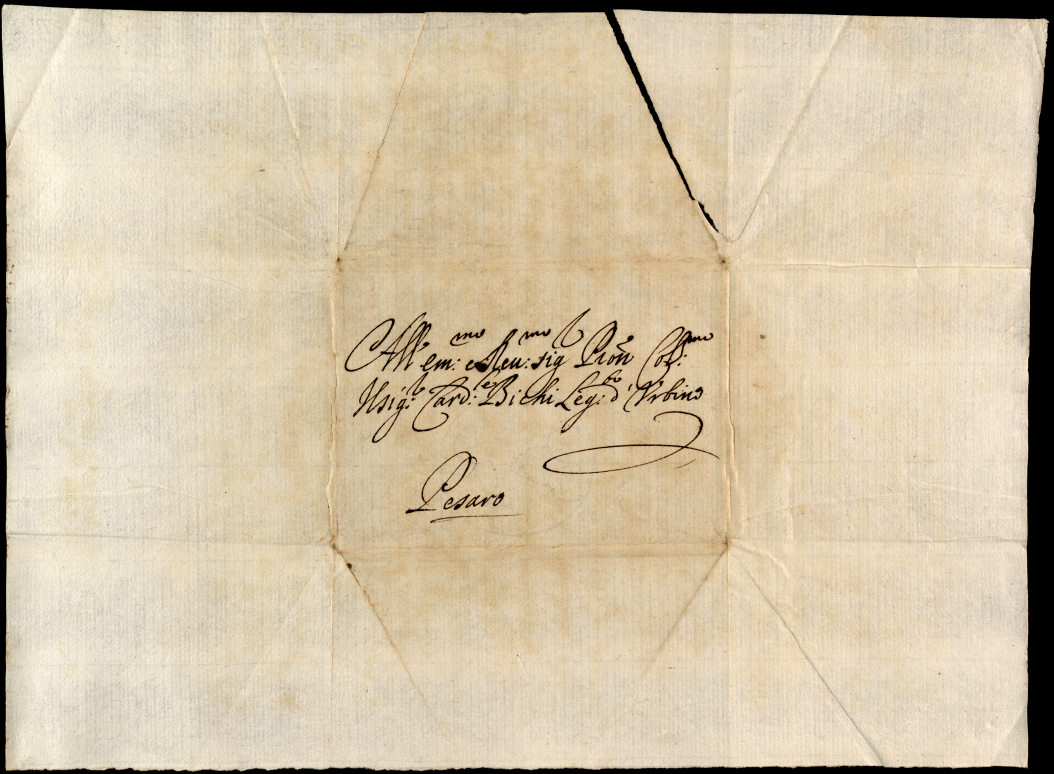 All' em:mo e Reu:mo sig.r Pròn Col:mo
Il sig:r Card:le Bichi Leg:to d'Vrbino
Pesaro